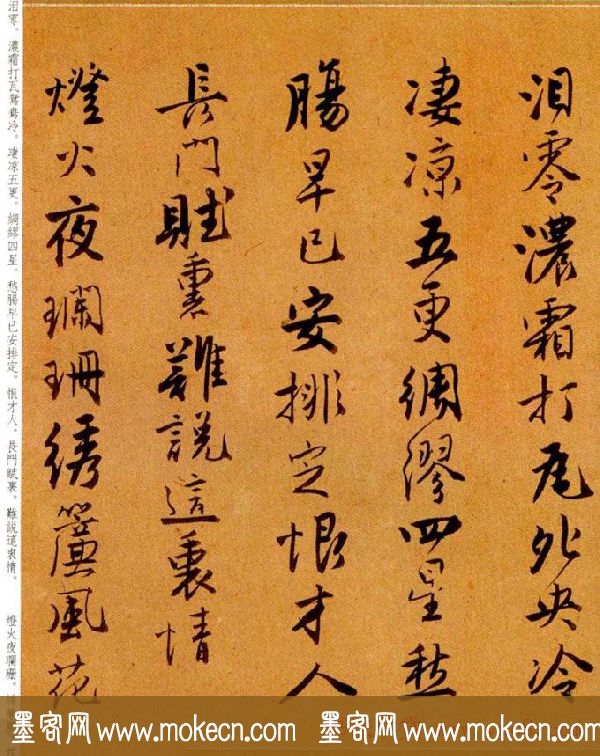 泪零濃霜打瓦夗央冷
凄凉五更綢繆四星愁
腸早已安排定恨才人
長門賦裏難説這衷情
燈火夜瓓珊綉簾風花
泪零。濃霜打瓦鴛鴦冷。凄凉五更。綢繆四星。愁腸早已安排定。恨才人。長門賦裏。難説這衷情。 燈火夜瓓珊。
墨客网 www.mokecn.com 墨客网 www.mokecn.com